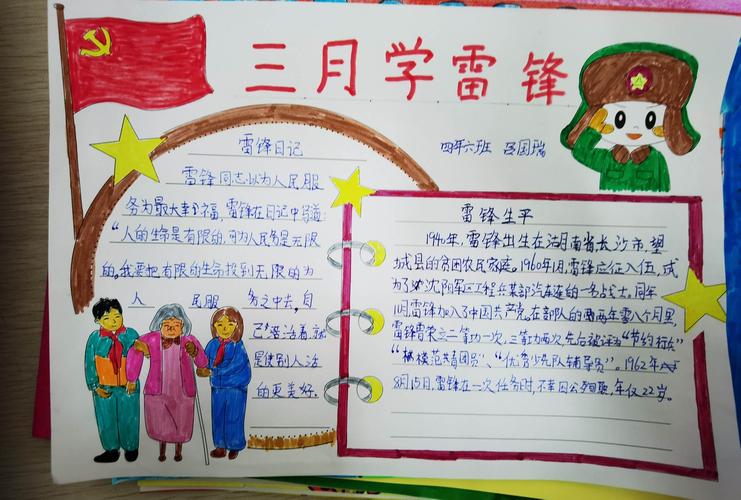 三月学雷锋
四年六班 吕国瑞
雷锋日记
雷锋同志以为人民服
务为最大幸福，雷锋在日记中写道：
“人的生命是有限的，可为人民务是无限
的，我要把有限的生命投到无限的为
人 民服 务之中去，自
己活着，就
是使别人活
的更美好。
雷锋生平
1940年，雷锋出生在湖南省长沙市望
城县的贫困农民家庭。1960年1月，雷锋应征入伍，成
为了沈阳军区工程兵某部汽车连的一名战士。同年
11月雷锋加入了中国共产党。在部队的两年零八个月里
雷锋荣立二等功一次，三等功两次，先后被评为“节约标兵”
“模范共青团员”、“优秀少先队辅导员”。1962年
8月15日，雷锋在一次任务时，不幸因公殉职，年仅22岁。